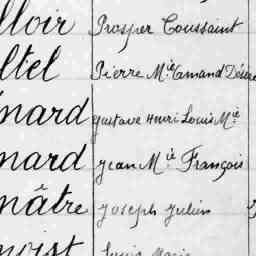 lloir Prosper Toussaint
ltel Pierre Mie Amand Désiré
nard Gustave Henri Louis Mie
nard Jean Mie François
naître Joseph Julien
noist Louis Marie